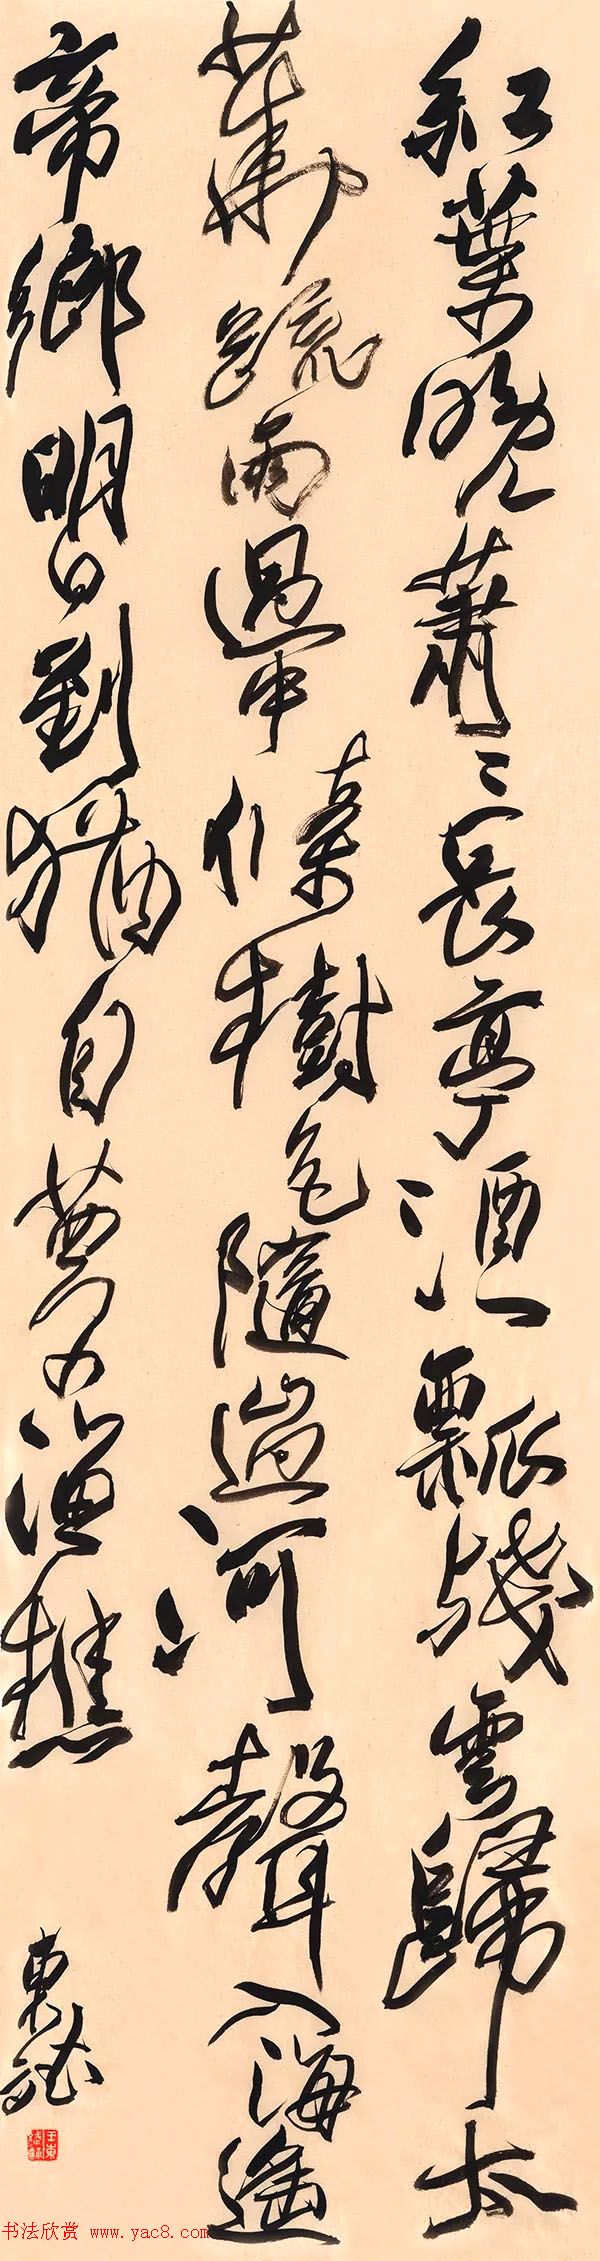 紅葉晚蕭〻長亭酒一瓢殘雲歸太
華疏雨過中條樹色隨山迥河聲入海遙
帝鄉明日到猶自夢漁樵
東
书法欣赏 www.yac8.com